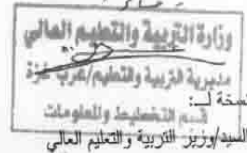 وزارة التربية والتعليم العالي
مديرية التربية والتعليم/غرب غزة
قسم التخطيط والمعلومات
نسخة لـ:
السيد/وزير التربية والتعليم العالي